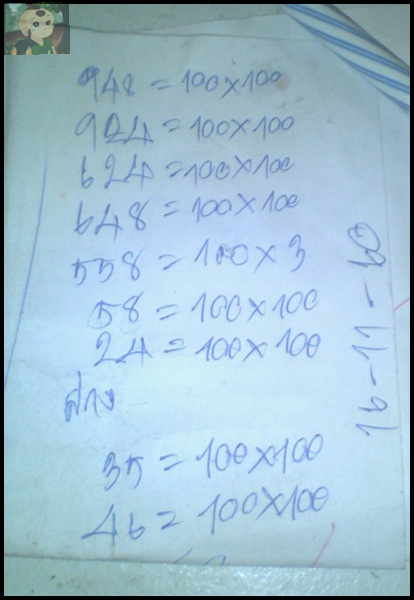 948 = 100x100
924 = 100x100
624 = 100x100
648 = 100x100
558 = 100x3
58 = 100x100
24 = 100x100
ล่าง
35 = 100x100
46 = 100x100
16-11-60